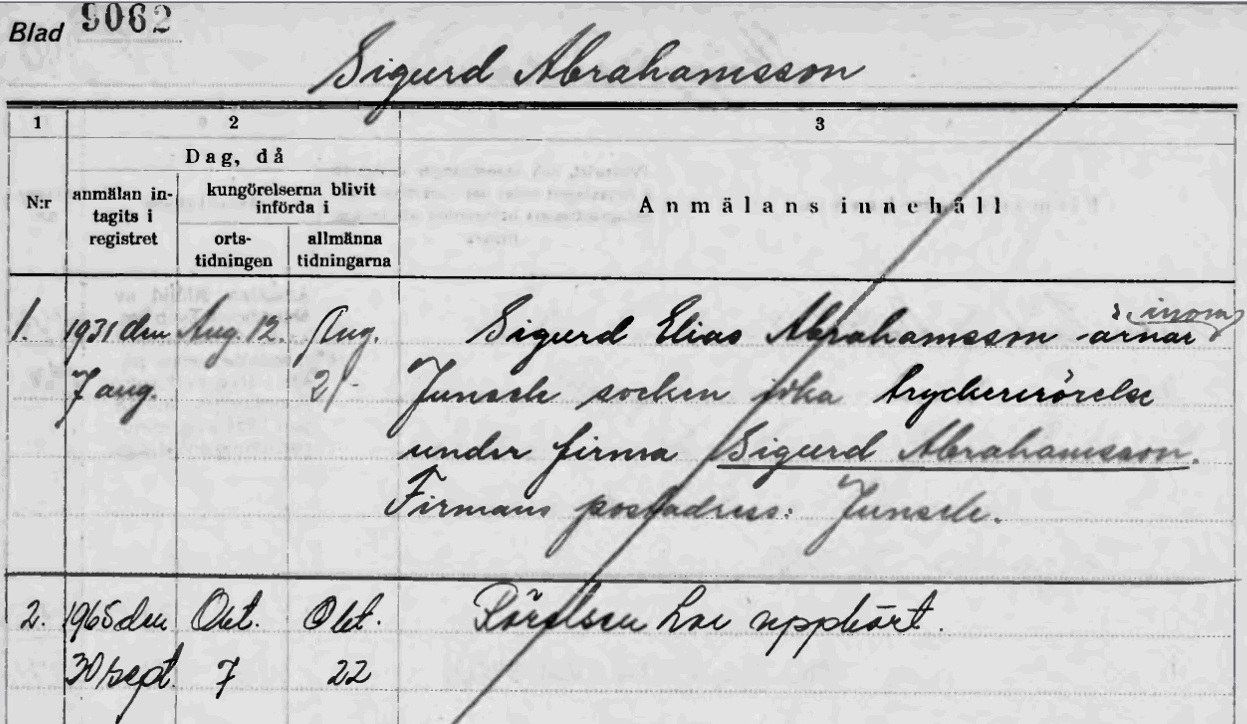 Blad 9062
Sigurd Abrahamsson
1 2 3
Dag, då
N:r
anmälan in-
tagits i
registret
kungörelserna blivit
införda i
orts-
tidningen
allmänna
tidningarna
Anmälans innehåll
inom
1. 1931 den Aug. 12. Aug. Sigurd Elias Abrahamsson ärnar
7 aug. 21 Junsele socken idka tryckerirörelse
under firma Sigurd Abrahamsson.
Firmans postadress: Junsele.
2. 1965 den Okt. Okt. Rörelsen har upphört.
30 sept. 7 22